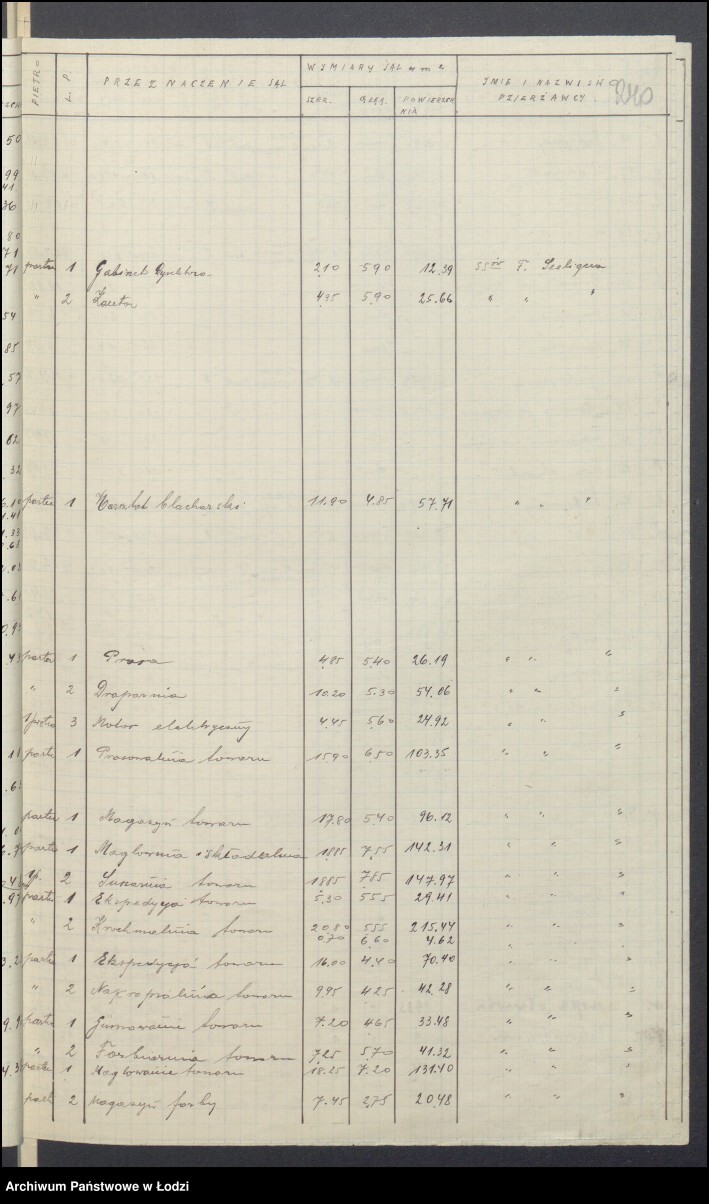 PIĘTRO L. P. PRZEZNACZENIE SAL WYMIARY SAL w m 2 IMIĘ I NAZWISKO DZIERŻAWCY. 240
SZER. DŁUG. POWIERZCHNIA
50
99
41
36
80
71
71 parter 1 Gabinet 2.10 5.90 12.39 F.
" 2 Kantor 4.35 5.90 25.66 " " "
54
85
57
97
62
32
parter 1 Warsztat blacharski 11.90 4.85 57.71 " " "
parter 1 Prasa 4.85 5.40 26.19 " " "
" 2 Draparnia 10.20 5.30 54.06 " " "
3 Motor elektryczny 4.45 5.60 24.92 " " "
part. 1 Prasowalnia towaru 15.90 6.50 103.35 " " "
parter 1 Magazyn towaru 17.80 5.40 96.12 " " "
parter 1 Maglownia i składalnia 18.85 7.55 142.31 " " "
Ip. 2 Suszarnia towaru 18.85 7.85 147.97 " " "
parter 1 Ekspedycja towaru 5.30 5.55 29.41 " " "
" 2 Krochmalnia towaru 20.80 5.55 215.44 " " "
0.70 6.60 4.62
parter 1 Ekspedycja towaru 16.00 4.40 70.40 " " "
" 2 towaru 9.95 4.25 42.28 " " "
parter 1 towaru 7.20 4.65 33.48 " " "
" 2 Farbiarnia towaru 7.25 5.70 41.32 " " "
parter 1 Maglowanie towaru 18.25 7.20 131.40 " " "
part. 2 Magazyn farby 7.45 2.75 20.48 " " "
Archiwum Państwowe w Łodzi